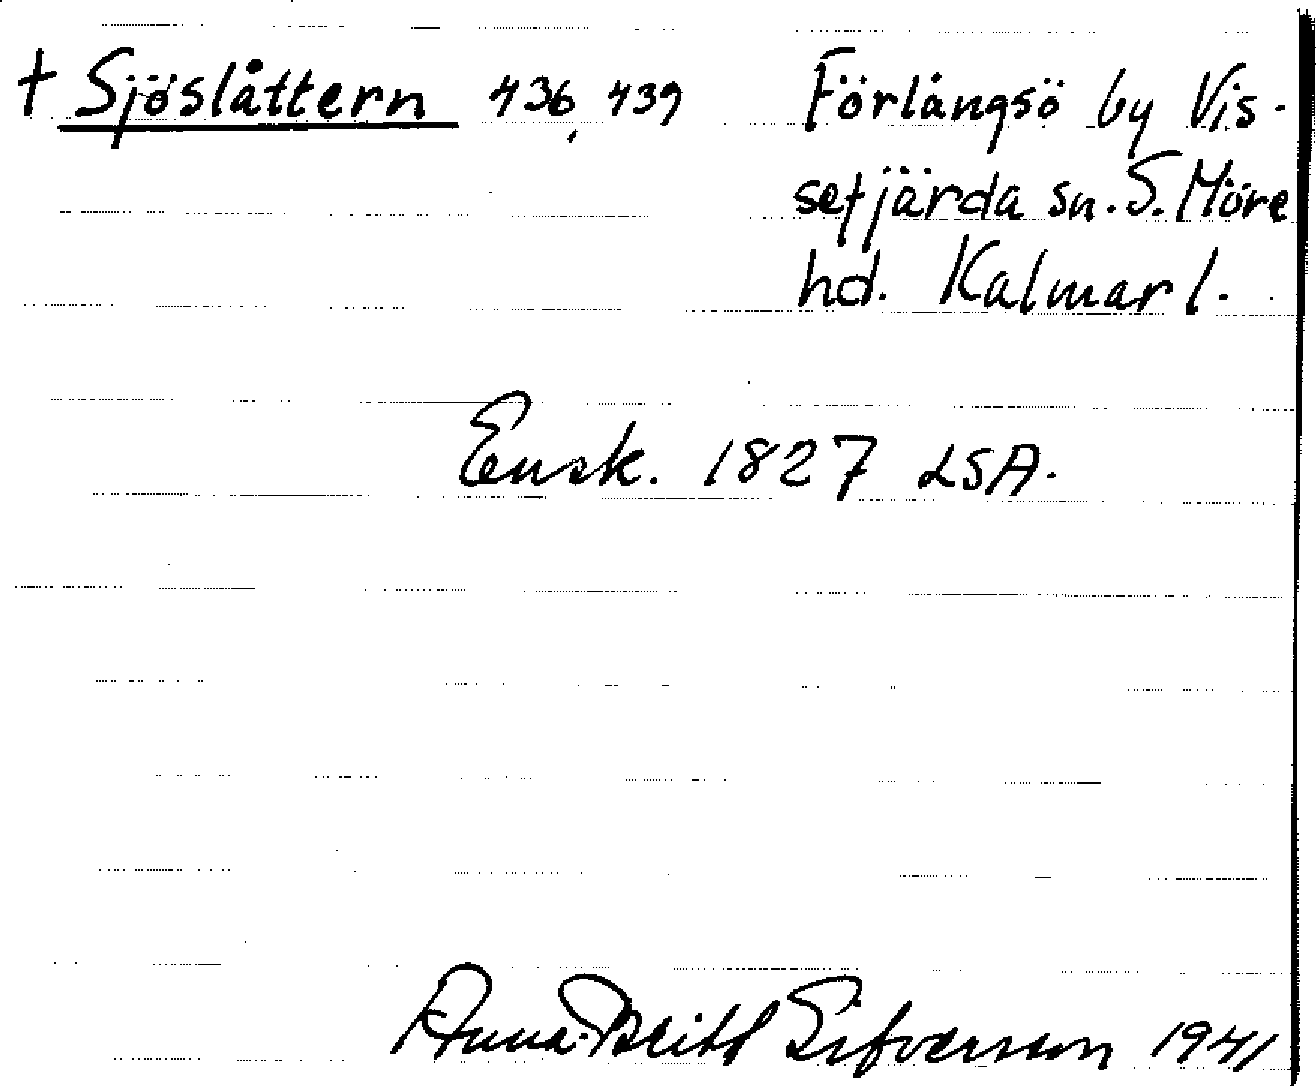 † Sjöslåttern 436, 439 Förlångsö by Vis-
sefjärda sn. S. Möre
hd. Kalmar l.
Ensk. 1827 LSA.
Anna-Britt Sifverson 1941